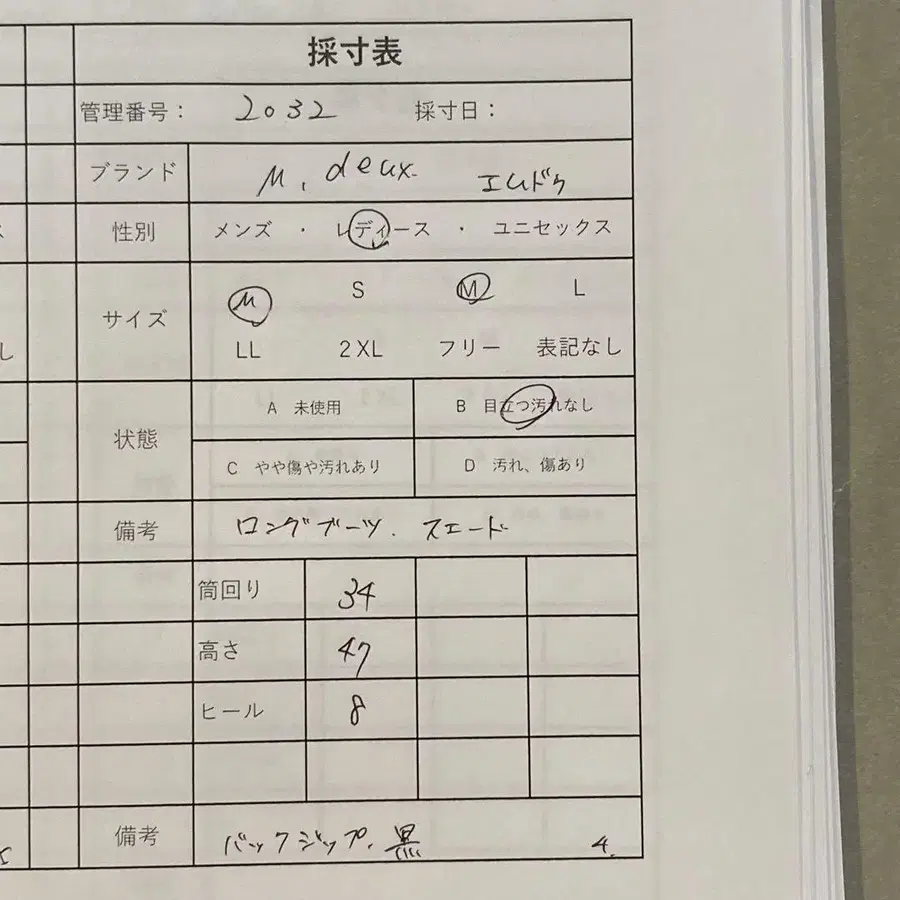 採寸表
管理番号： 2032 採寸日：
ブランド M. deux. エムドゥ
性別 メンズ ・ レディース ・ ユニセックス
M S M L
サイズ
LL 2XL フリー 表記なし
A 未使用 B 目立つ汚れなし
状態
C やや傷や汚れあり D 汚れ、傷あり
備考 ロングブーツ. スエード
筒回り 34
高さ 47
ヒール 8
備考 バックジップ、黒 4.